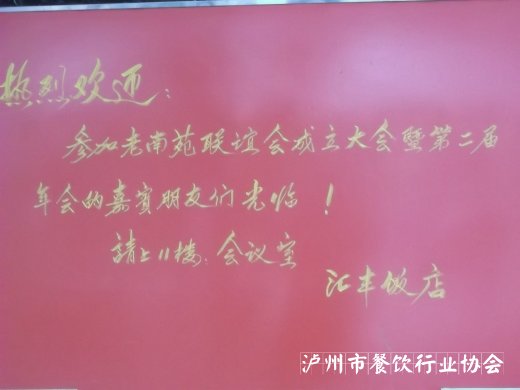 热烈欢迎：
参加老南苑联谊会成立大会暨第二届
年会的嘉宾朋友们光临！
請上11楼：会议室
汇丰饭店
泸州市餐饮行业协会